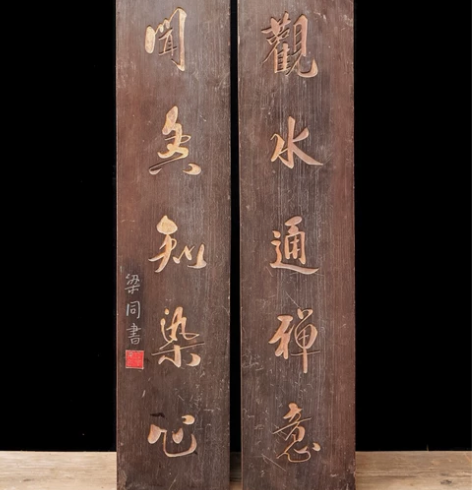 觀水通禅意
聞香知染心
梁同書